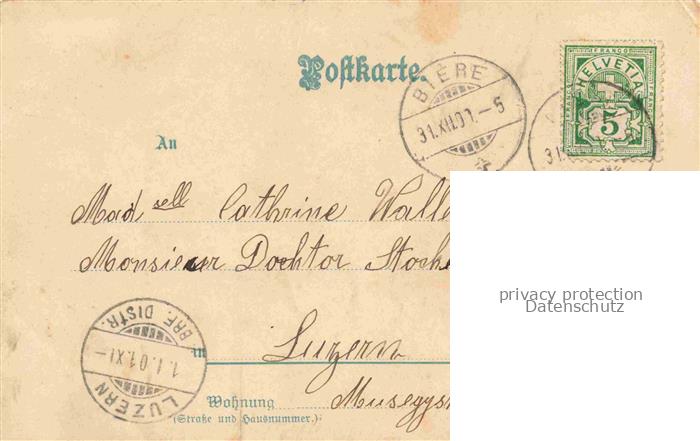 Postkarte.
BIÈRE
31.XII.01.–5
FRANCO
HELVETIA
5
31.
An
Mad sell Cathrine Walle
Monsieur Docktor Stocke
in Luzern
Wohnung Musegyst
(Straße und Hausnummer.)
LUZERN
1.I.01.XI–
BRF. DISTR.
privacy protection
Datenschutz